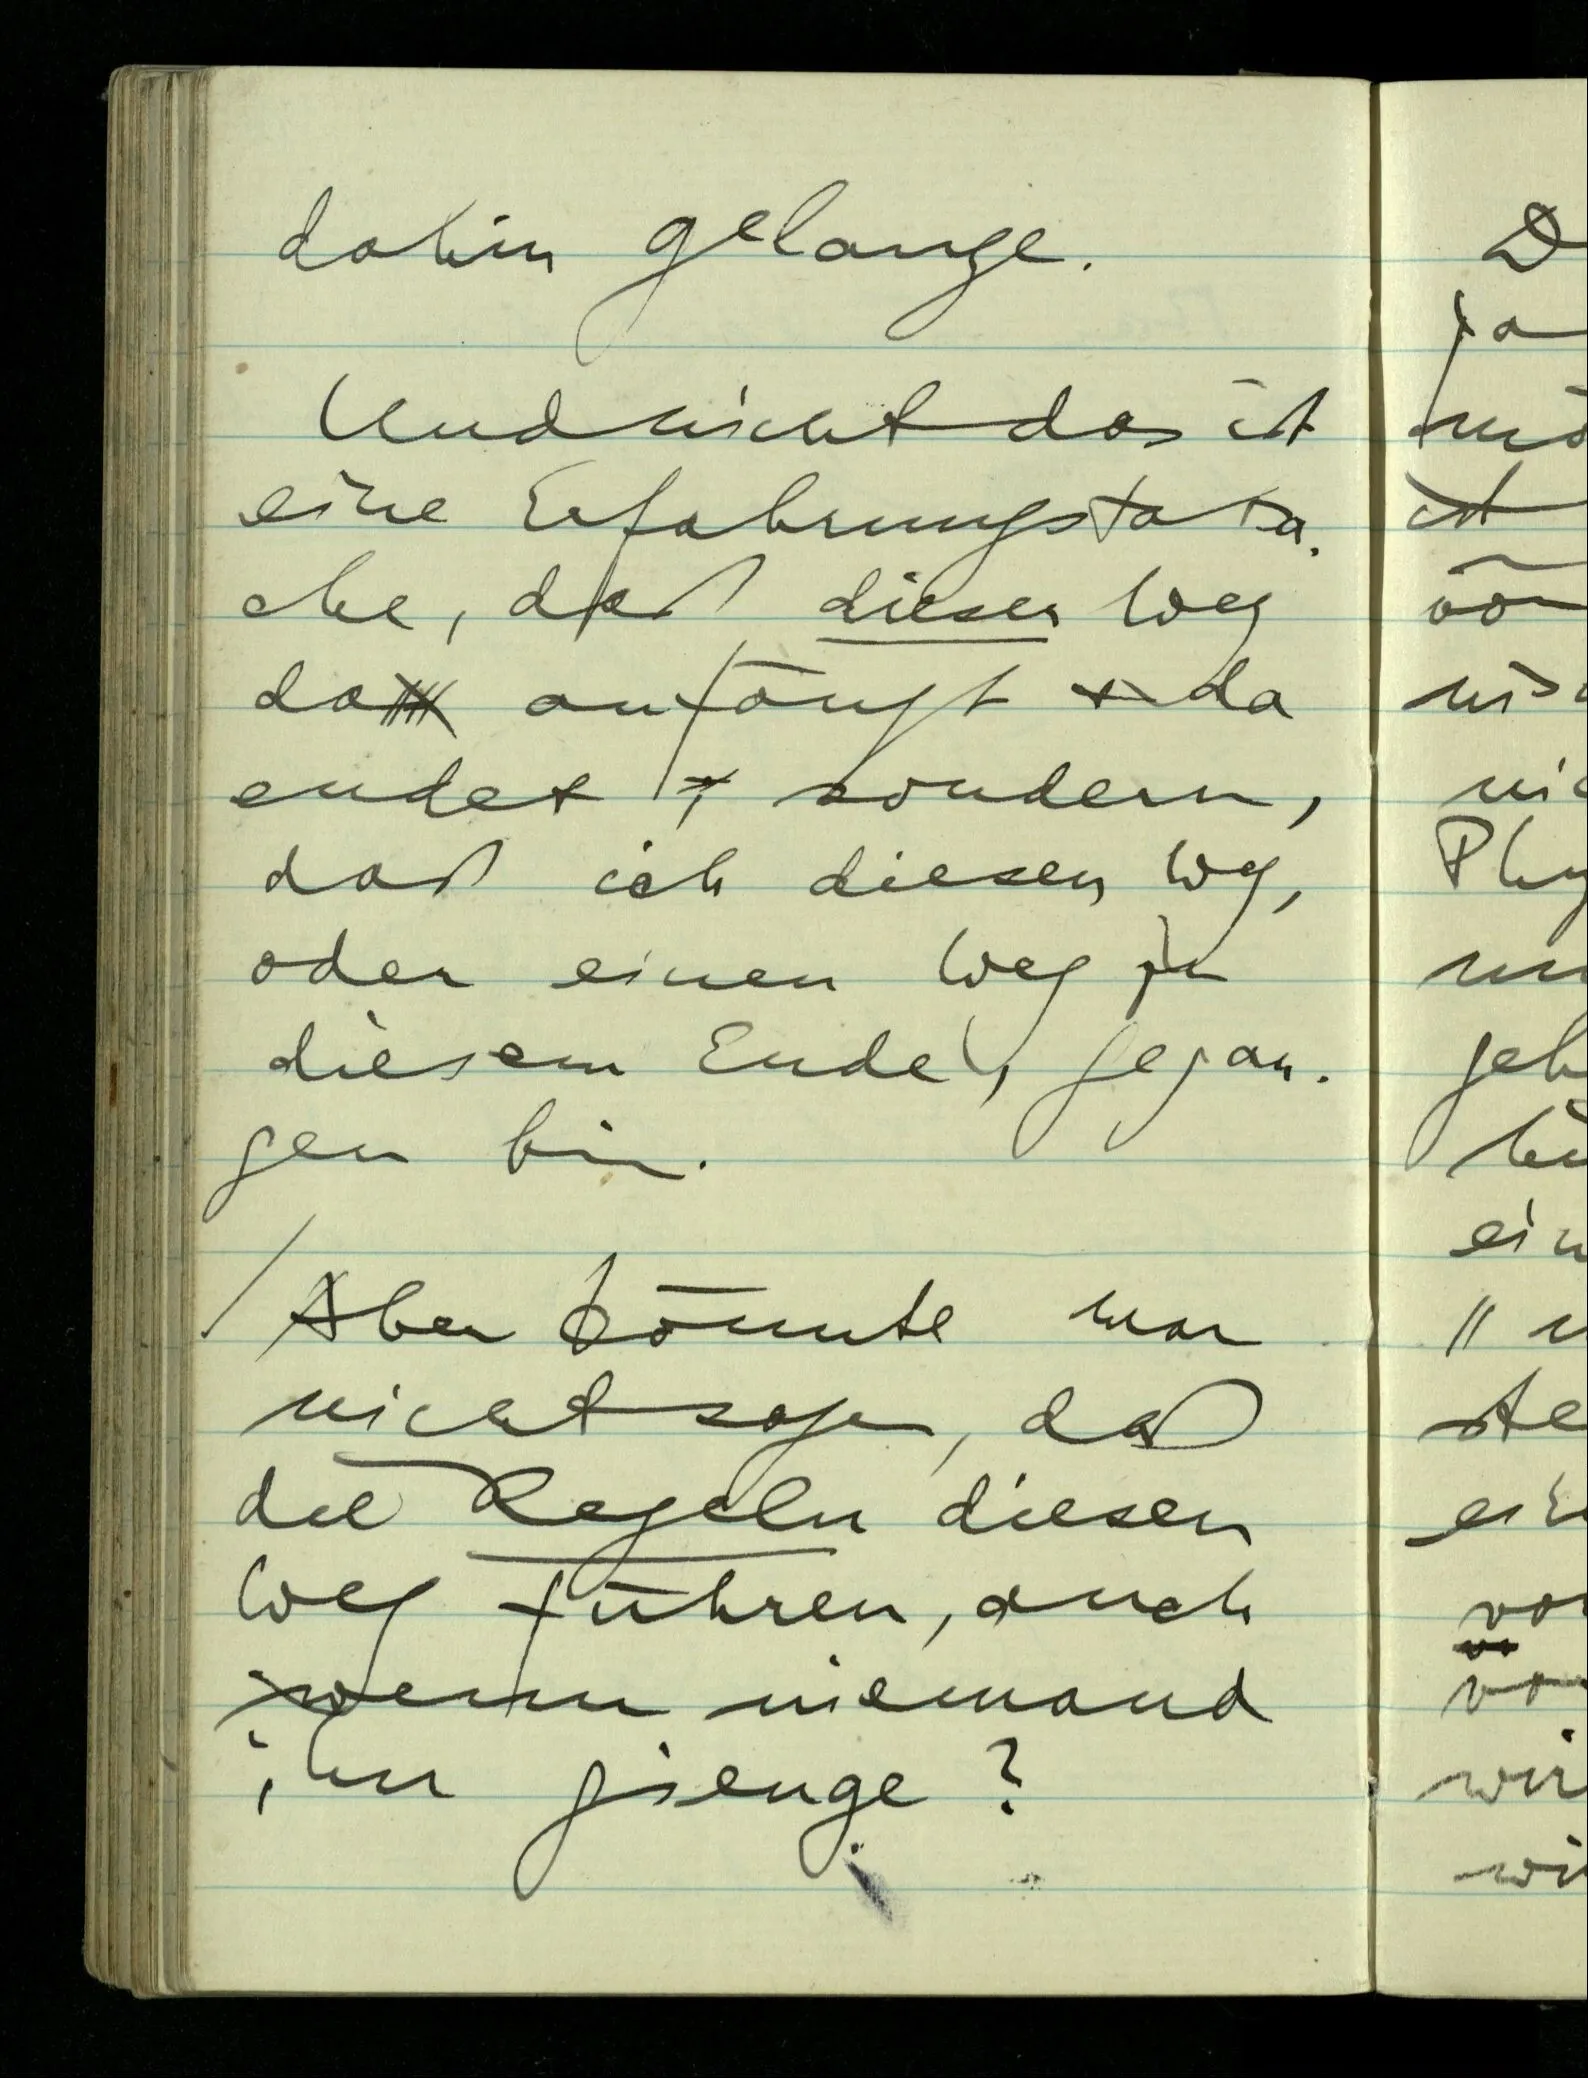 dahin gelange.
Und nicht das ist
eine Erfahrungstatsa-
che, daß dieser Weg
da anfängt & da
endet, sondern,
daß ich diesen Weg,
oder einen Weg zu
diesem Ende, gegan-
gen bin.
/ Aber könnte man
nicht sagen, daß
die Regeln diesen
Weg führen, auch
wenn niemand
ihn gienge?